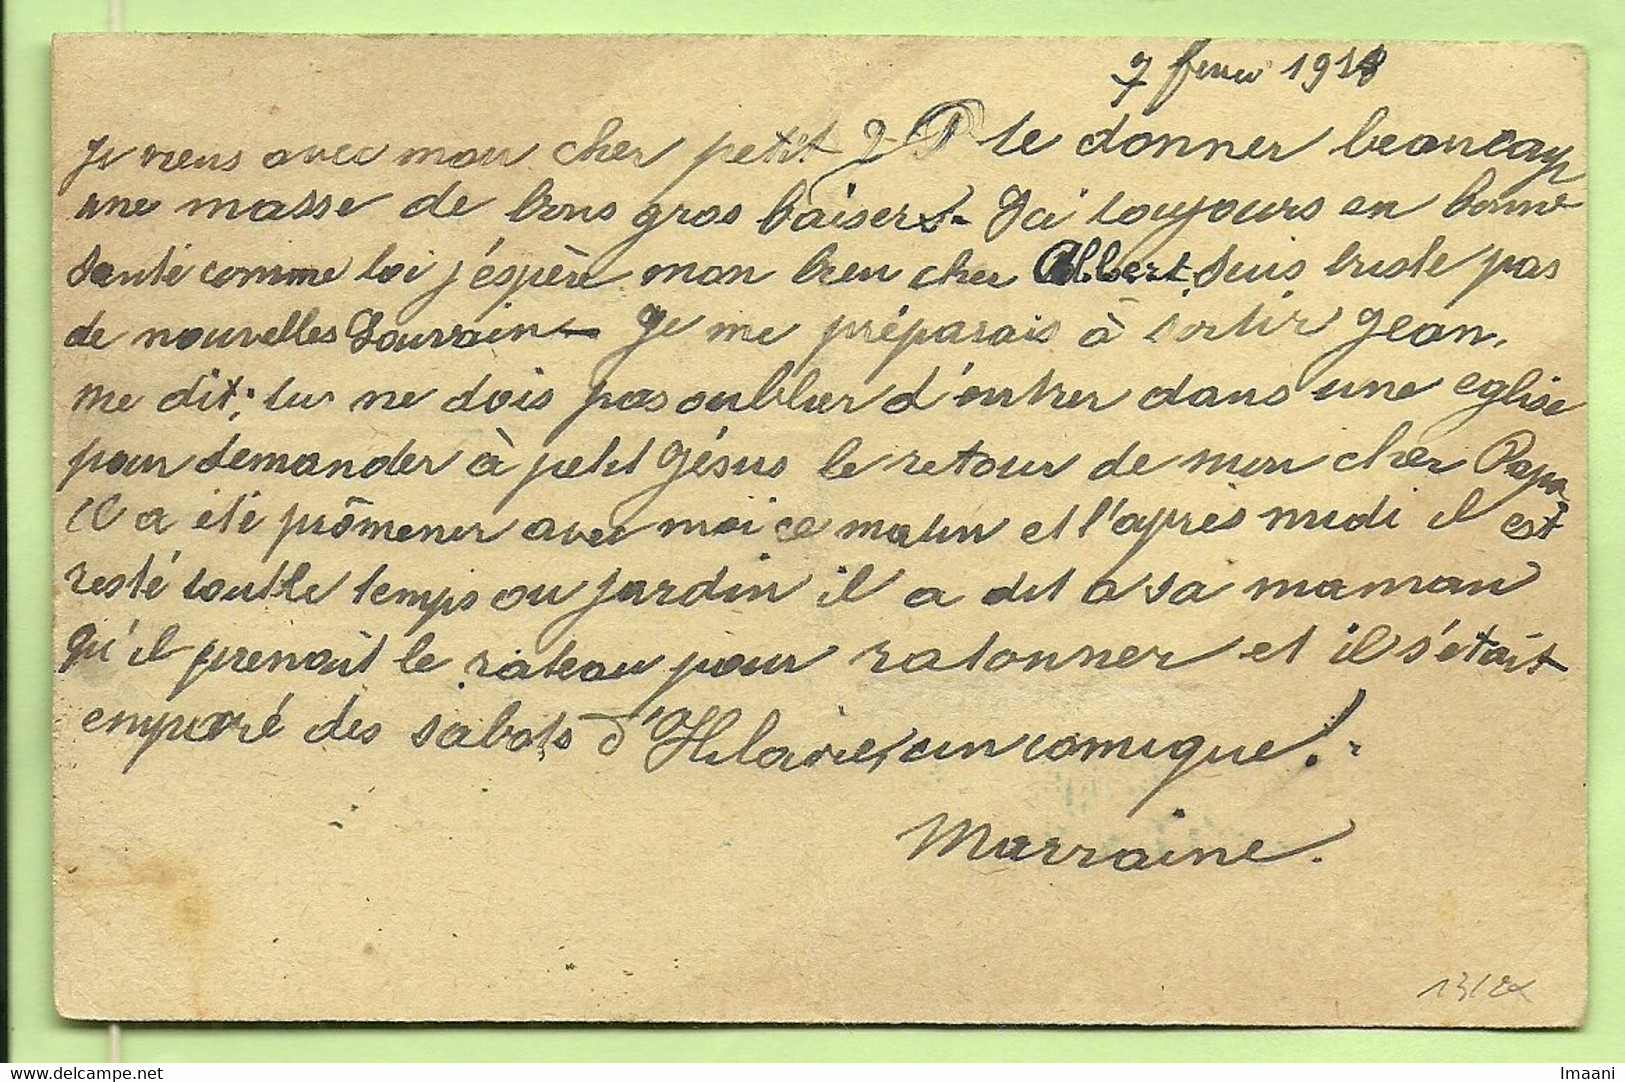 7 fevrier 1918
Je viens avec mon cher petit J te donner beaucoup
une masse de bons gros baisers - Ici toujours en bonne
santé comme toi j'éspère mon bien cher Albert, suis triste pas
de nouvelles Louvain - Je me préparais à sortir Jean,
me dit; tu ne dois pas oublier d'entrer dans une eglise
pour demander à petit Jésus le retour de mon cher Papa
il a été prômener avec moi ce matin et l'après midi il est
resté tout le temps au jardin il a dit a sa maman
qu'il prenait le rateau pour ratonner et il s'était
emparé des sabots d'Hilaire, un comique!
Marraine.
Imaani